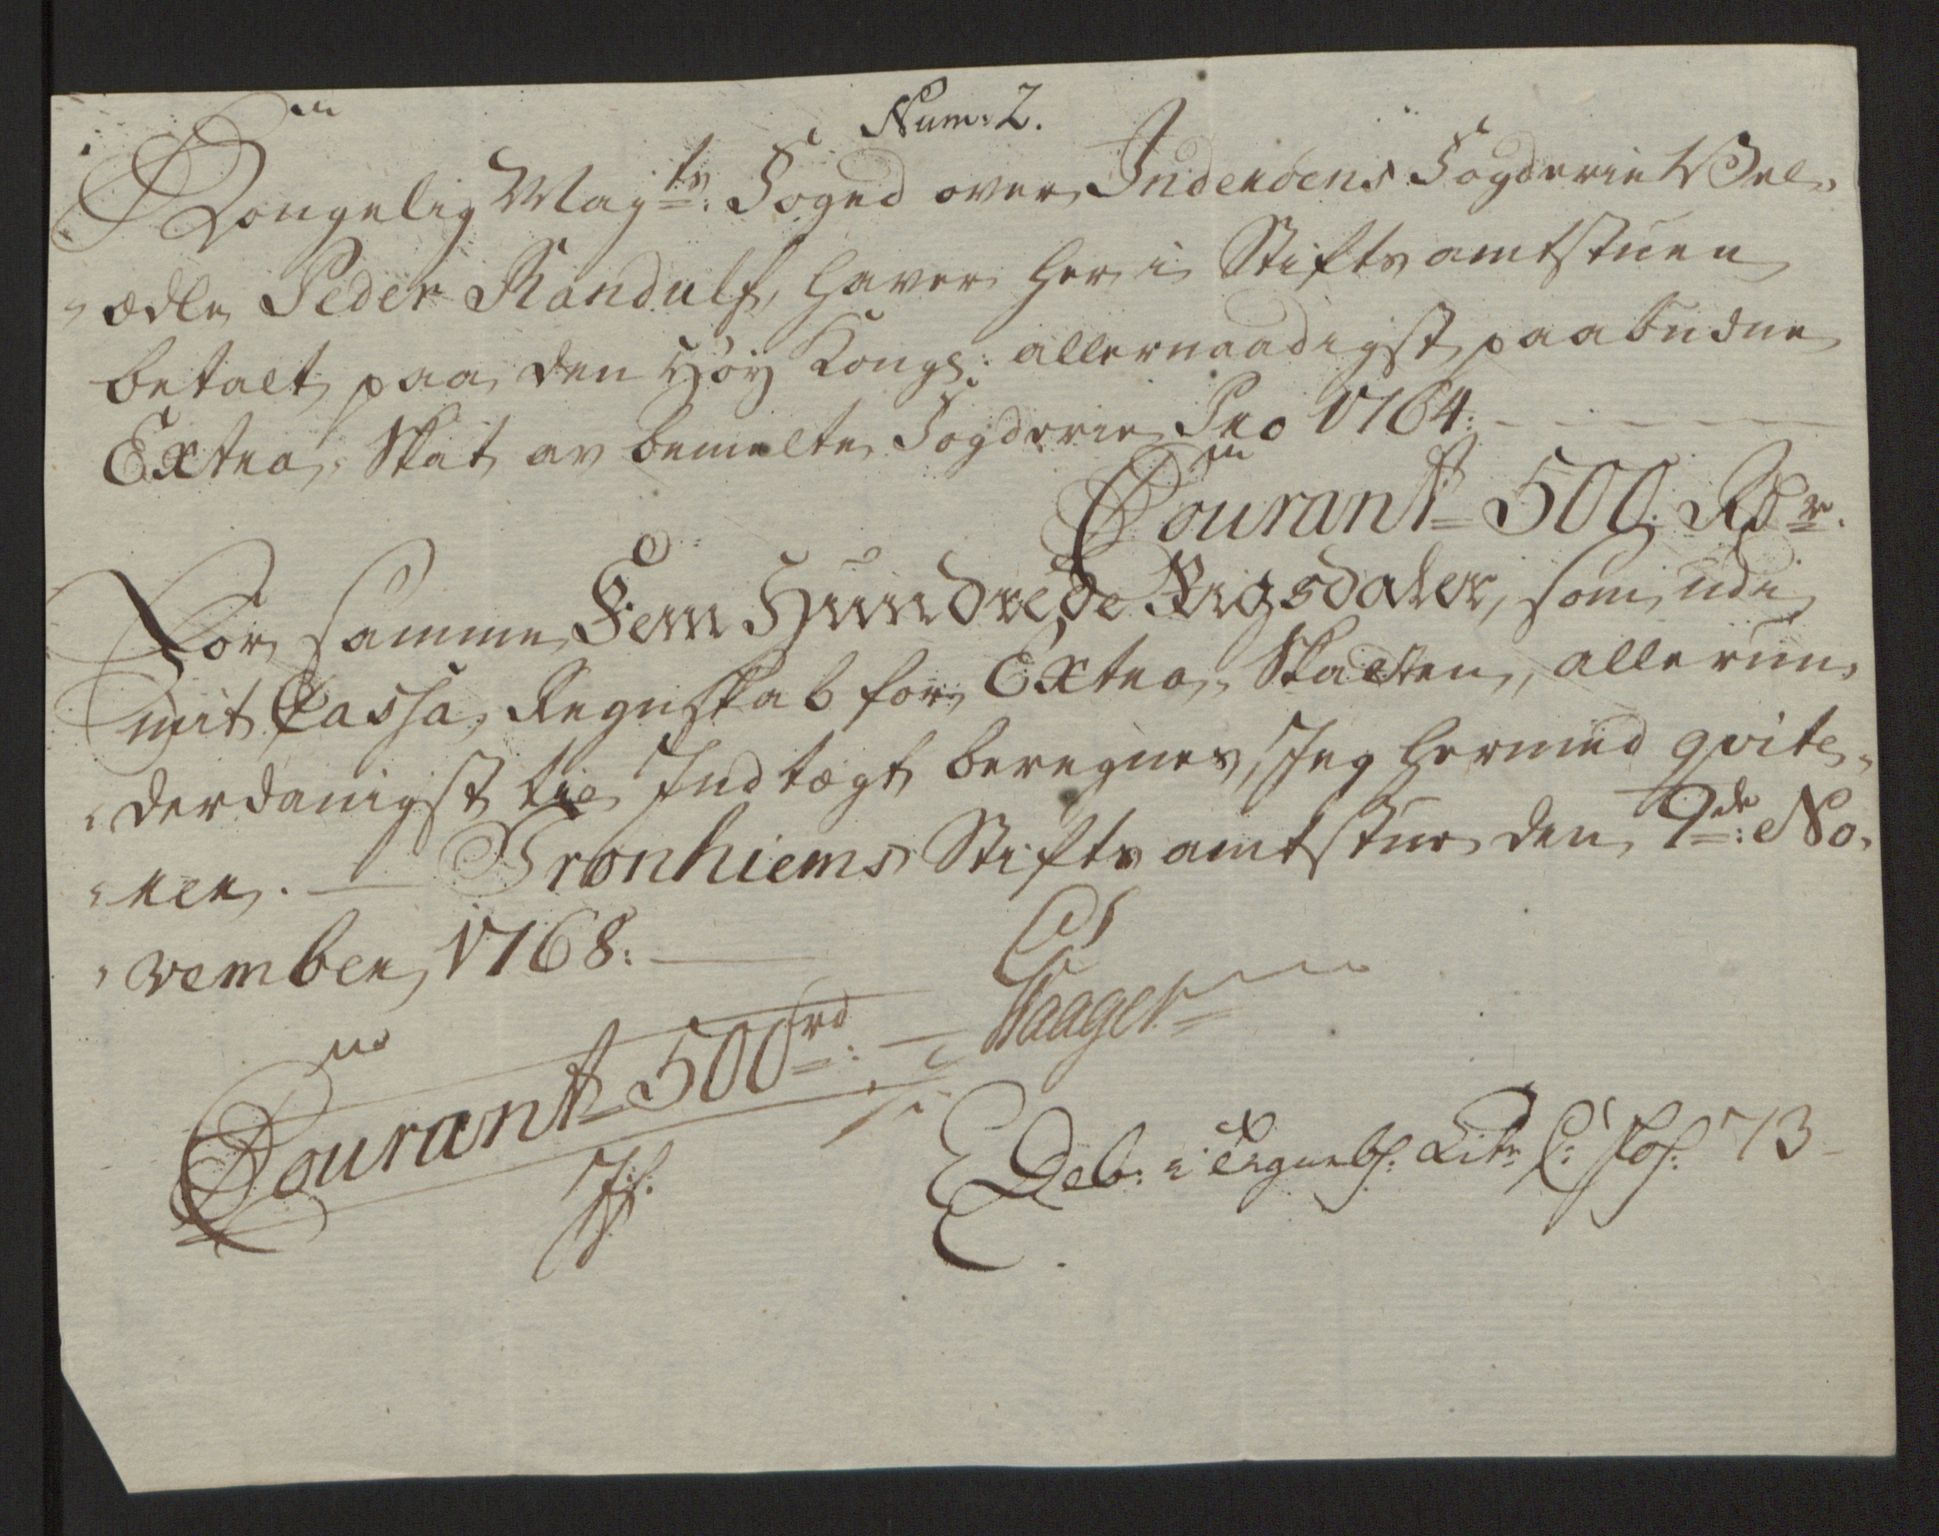 Num: 2.
Kongelig Mayts: Foged over Inderöens Fogderie Vel-
ædle Peder Randulf, haver her i Stiftsamtstuen
betalt paa den Höy Kongl: allernaadigst paabudne
Extra Skat av bemelte Fogderie Pro 1764:
Courant 500 Rdr.
For samme Fem Hundrede Rigsdaler, som udi
mit Cassa Regnskab for Extra Skatten, allerun-
derdanigst til Indtægt beregnes, Jeg hermed qvite-
rer. Tronhiems Stiftsamtstue den 9de: No-
vember 1768:
Courant 500rd:
Haager
Deb: i Regnsk: Litr C: Fol: 73